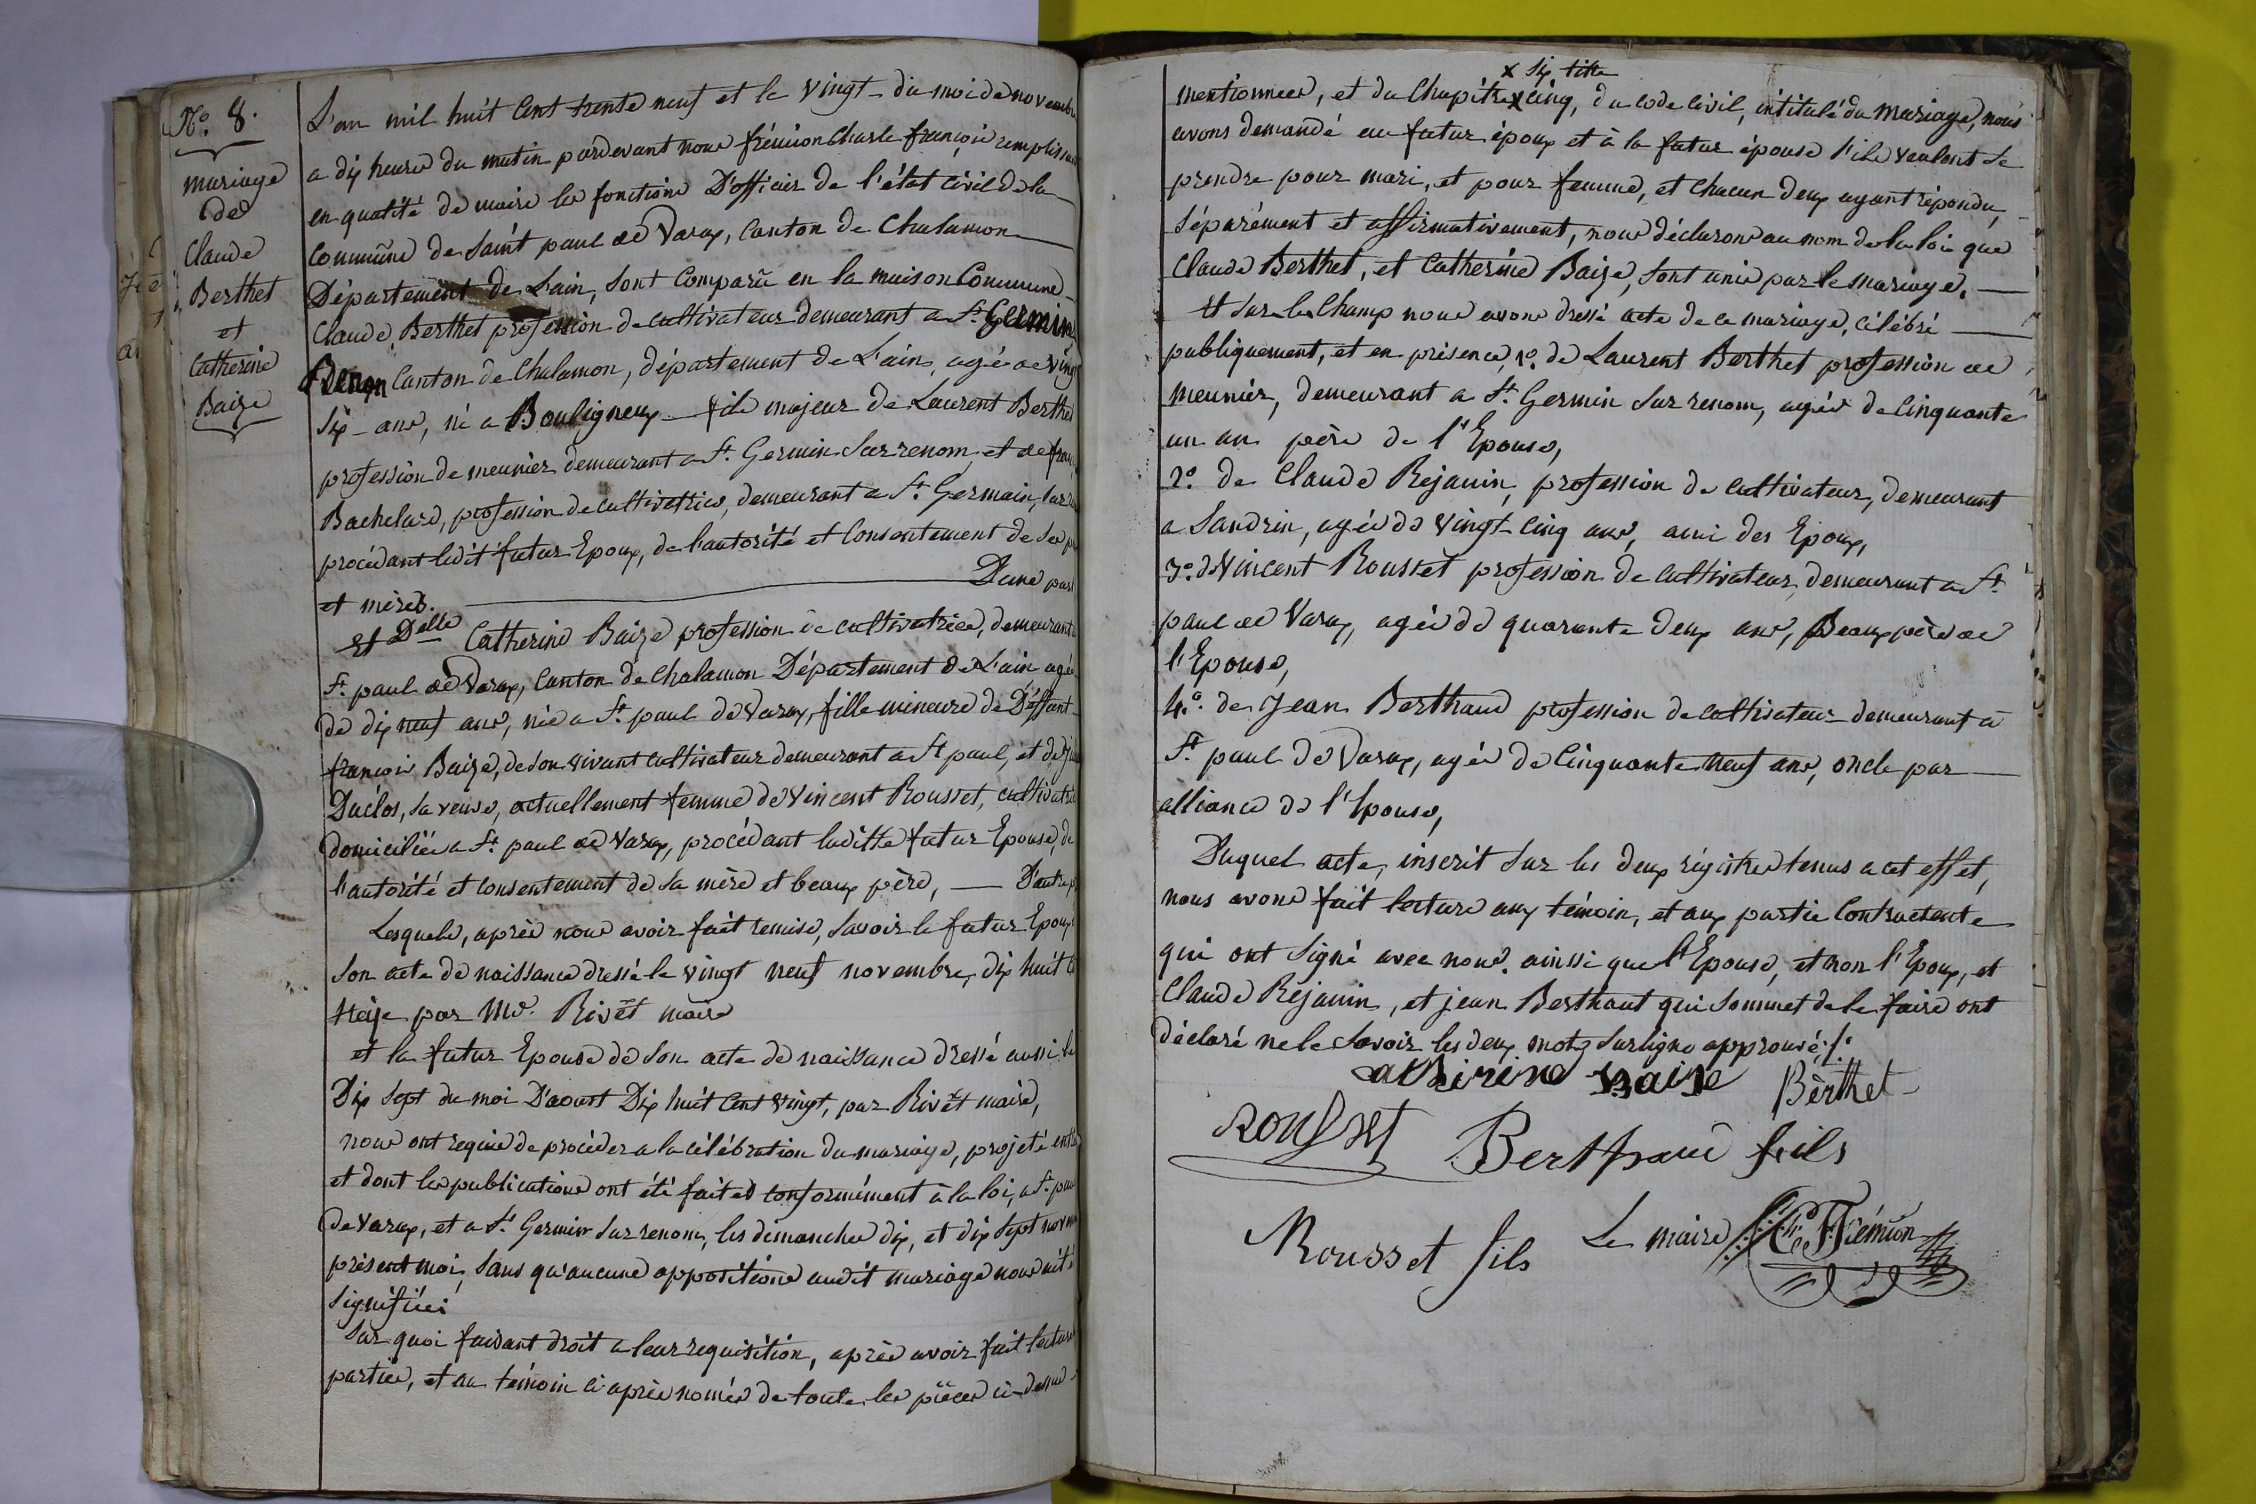 N.o 8.
mariage
de
Claude
Berthet
et
Catherine
Baize
L'an mil huit cent trente neuf et le vingt du moi de novembre
a dix heure du matin pardevant nous frémion Charle françois remplissant
en qualité de maire les fonctions D'officier de l'état civil de la
Commune de Saint paul de Varax, Canton de Chalamon
Département de L'ain, sont comparu en la maison Commune
Claude Berthet profession de cultivateur demeurant a St. Germin
Renon Canton de Chalamon, département de L'ain, agé de vingt
six ans, né a Bouligneux fils majeur de Laurent Berthet
profession de meunier demeurant a St. Germin sur renom, et de fran
Bachelard, profession de cultivatrice, demeurant a St. Germain, sur re
procédant ledit futur Epoux, de l'autorité et consentement de ses p
et mères. D'une part
Et Delle Catherine Baize profession de cultivatrice, demeurant
St. paul de Varax, Canton de Chalamon Département de L'ain agée
de dix neuf ans, née a St. paul de Varax, fille mineure de Déffunt
françois Baize, de son vivant cultivateur demeurant a St paul, et de
Duclos, sa veuve, actuellement femme de Vincent Rousset, cultivat
domiciliée a St. paul de Varax, procédant laditte futur Epouse, de
l'autorité et consentement de sa mère et beaux père, D'autre p
Lesquels, après nous avoir fait remise, savoir le futur Epoux
son acte de naissance dressé le vingt neuf novembre, dix huit c
treize par Mr. Rivet maire
et la futur Epouse de son acte de naissance dressé aussi le
Dix sept du moi D'aoust Dix huit cent vingt, par Rivet maire,
nous ont requis de procéder a la célébration du mariage, projeté entr
et dont les publications ont été faites conformément à la loi, a St. pau
de Varax, et a St. Germin sur renom, les dimanches dix, et dix sept nov
présent moi, sans qu'aucune oppositions audit mariage nous ait é
signifiée
Sur quoi faisant droit a leur requisition, après avoir fait lecture
parties, et au témoin ci après només de toute les pièces ci-dessus
x six, titre
mentionnees, et du Chapitre x cinq, du code civil, intitulé du mariage, nous
avons demandé au futur époux et à la futur épouse s'ils veulent se
prendre pour mari, et pour femme, et chacun deux ayant répondu,
séparément et affirmativement, nous déclarons au nom de la loi que
Claude Berthet, et Catherine Baize, sont unis par le mariage.
Et sur le champ nous avons dressé acte de ce mariage, célébré
publiquement, et en présence, 1o. de Laurent Berthet profession de
meunier, demeurant a St. Germin sur renom, agés de cinquante
un an père de l'Epouse,
2o. de Claude Rejanin, profession de cultivateur, demeurant
a Sandrin, agée de vingt-cinq ans, ami des Epoux,
3o. de Vincent Rousset profession de cultivateur, demeurant a St
paul de Varax, agée de quarante deux ans, Beaux père de
l'Epouse,
4o. de Jean Berthaud profession de cultivateur demeurant à
St. paul de Varax, agée de cinquante neuf ans, oncle par
alliance de l'Epouse,
Duquel acte, inscrit sur les deux régistres tenus a cet effet,
nous avons fait lecture aux témoin, et aux partie contractente
qui ont signé avec nous. ainssi que l'Epouse, et non l'Epoux, et
Claude Rejanin, et jean Berthaut qui sommet de le faire ont
déclaré ne le savoir les deux motz surligne approuvé ./.
catherine Baise Bèrthet
Rousset Berthaud fils
Rousset fils Le maire Ch. F. Frémion